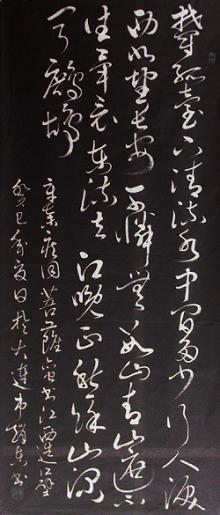 鬱孤臺下清江水中間多少行人淚
西北望長安可憐無數山青山遮不
住畢竟東流去江晚正愁餘山深
聞鷓鴣
辛棄疾詞菩薩蠻書江西造口壁
癸巳年夏日於大連市